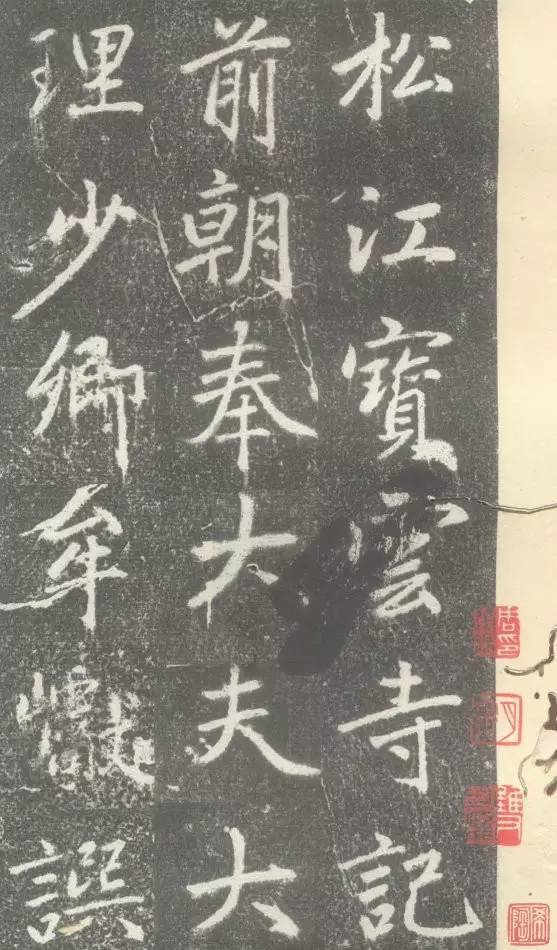 松江寶雲寺記
前朝奉大夫大
理少卿牟巘譔